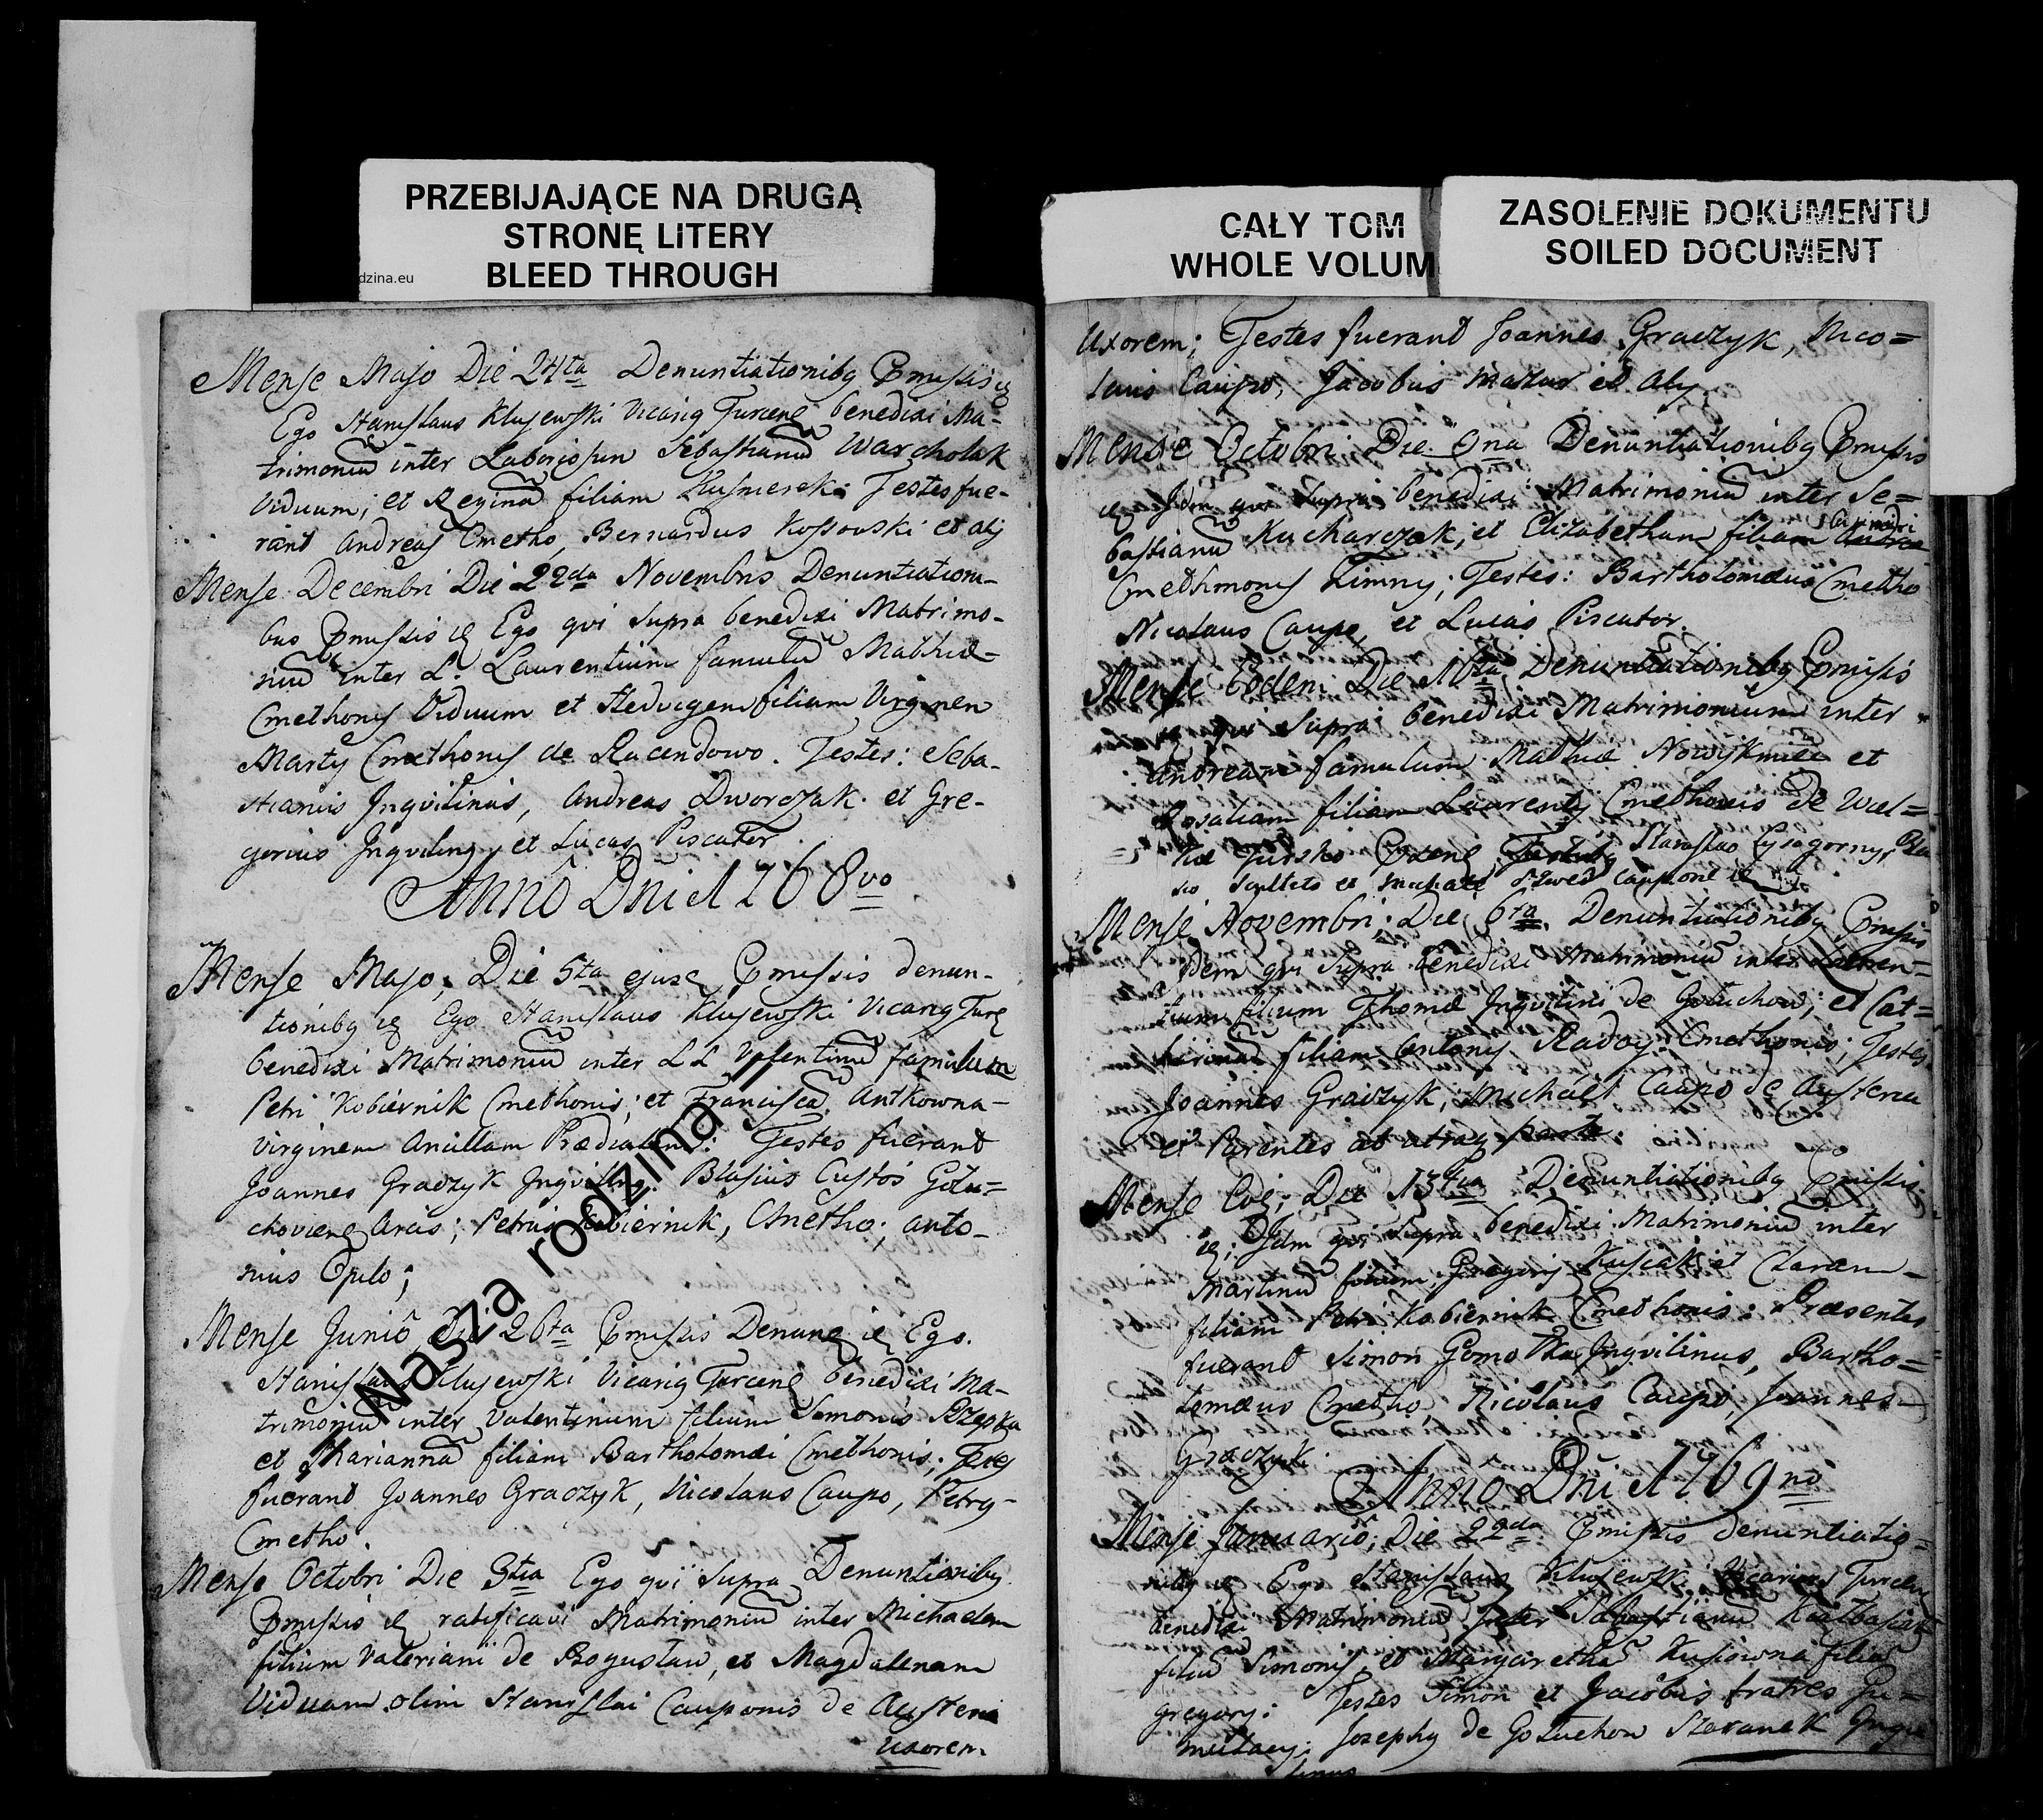 PRZEBIJAJĄCE NA DRUGĄ
STRONĘ LITERY
BLEED THROUGH
dzina.eu
CAŁY TOM
WHOLE VOLUM
ZASOLENIE DOKUMENTU
SOILED DOCUMENT
Mense Majo Die 24ta Denuntiationibg
Ego Stanislaus Klujewski Vicarig Turcenę benedixi Ma-
trimoniu inter Laboriosun Sebastianu Warcholak
Viduum; et Regina filiam Testes fue-
rant Andreas Cmetho, Bernardus Kossowski et alij
Mense Decembri Die 22da Novembris Denuntiationi-
bus Ego qvi Supra benedixi Matrimo-
niu inter L. Laurentium famulu Mathiæ
Cmethonis Viduum et Hedvigem filiam Virginen
Martij Cmethonis de Racendowo. Testes: Seba-
stianus Jnqvilinus, Andreas Dworczak et Gre-
gorius Jnqviling, et Lucas Piscator
Anno Dni 1768vo
Mense Majo; Die 5ta denun-
tionibg Ego Stanislaus Klujewski Vicarig Turę
benedixi Matrimoniu inter LL Valentinu famulum
Petri Kobiernik Cmethonis; et Francisca Antkowna
Virginem Ancillam Prædialem: Testes fuerant
Joannes Graczyk Jnqviling. Blasius Custos Golu=
Arcis; Petrus Kobiernik, Cmetho; Anto-
nius Opilo;
Mense Junio, Die 26ta Ego
Stanislaus Klujewski Vicarig Turcenę benedixi Ma-
trimoniu inter Valentinum filium Simonis Rzepka
et Marianna filiam Bartholomæi Cmethonis;
fuerant Joannes Graczyk, Nicolaus Caupo, Petrg
Cmetho.
Mense Octobri Die 3tia Ego qvi Supra Denuntionibg
ratificavi Matrimoniu inter Michaelem
filium Valeriani de Bogustaw, et Magdalenam
Viduam olim Stanislai Cauponis de Austeria
uxorem
Nasza rodzina
Uxorem; Testes fuerant Joannes Graczyk, Nico=
laus Caupo, Jacobus Mazur et Alij
Mense Octobri Die Denuntiationibg
qvi Supra benedixi Matrimoniu inter Se=
bastianu Kucharczak, et Elizabetham filiam Casimiri
Cmethmonis Zimny; Testes: Bartholomæus Cmetho
Nicolaus Caupo, et Lucas Piscator.
Mense Eodem Die Denuntiationibg
qvi Supra benedixi Matrimonium inter
Andream famulum Mathiæ et
Rosaliam filiam Laurentij Cmethonis de Wiel=
Stanislao
Sculteto et
Mense Novembri; Die 6ta Denuntiationibg
Jdem qvi Supra benedixi Matrimoniu inter
filium Thomæ Jnqvilini de Goluchow; et Cat=
filiam Antonij Cmethonis; Testes
Joannes Graczyk, Michael Caupo de Austeria
et Parentes ab utraq parte.
Mense Die 13tia Denuntiationibg
Jdem qvi Supra benedixi Matrimoniu inter
Martinu filium Gregorij Kusiak et Claram
filiam Petri Kobiernik Cmethonis: Præsentes
fuerant Simon Jnqvilinus, Bartho=
lomæus Cmetho, Nicolaus Caupo, Joannes
Graczyk.
Anno Dni 1769no
Mense Januario; Die 22da denuntiatio=
nibg Ego Stanislaus Klujewski Vicarius
benedixi Matrimoniu Jnter Sebastianu
filiu Simonis et Margaretha Kusiowna filia
Gregorij: Testes Simon et Jacobus fratres
Josephg de Goluchow Staranek